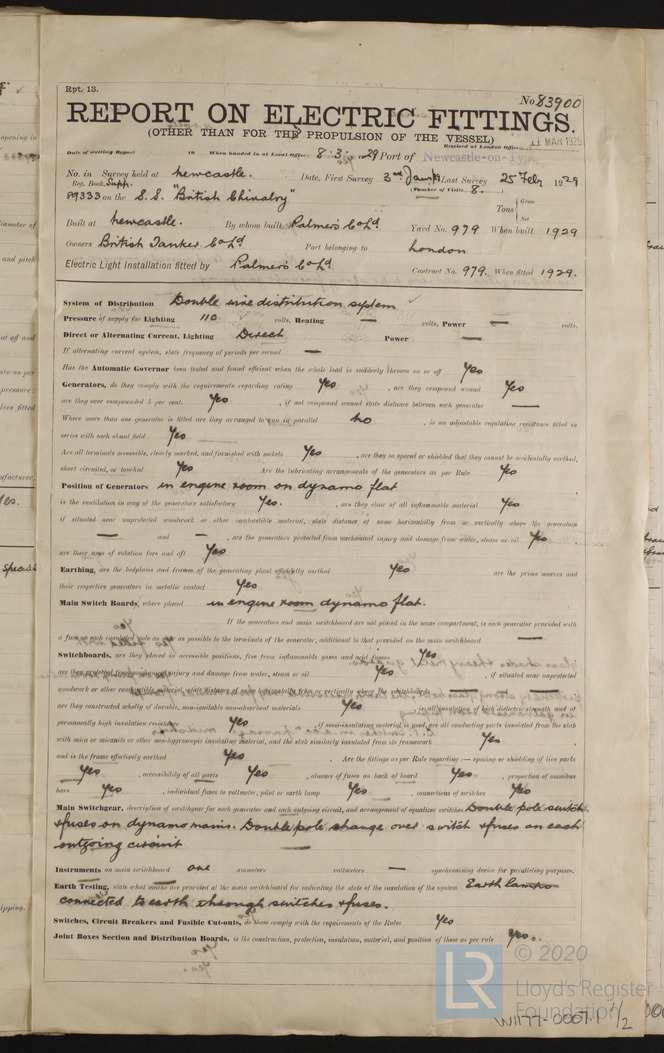 Rpt. 13.
No 83900
REPORT ON ELECTRIC FITTINGS.
(OTHER THAN FOR THE PROPULSION OF THE VESSEL)
11 MAR 1929
Date of writing Report 19 When handed in at Local Office 8.3.1929 Port of Newcastle-on-Tyne
Received at London Office
No. in Survey held at Newcastle. Date, First Survey 3rd Jany Last Survey 25 Feby 1929
Reg. Book. Supp. (Number of Visits 8.)
89333 on the S.S. "British Chivalry" Tons { Gross Net
Built at Newcastle. By whom built Palmers Co Ld Yard No. 979 When built 1929
Owners British Tanker Co Ld Port belonging to London
Electric Light Installation fitted by Palmers Co Ld Contract No. 979. When fitted 1929.
System of Distribution Double wire distribution system ✓
Pressure of supply for Lighting 110 ✓ volts, Heating — volts, Power — volts.
Direct or Alternating Current, Lighting Direct Power —
If alternating current system, state frequency of periods per second —
Has the Automatic Governor been tested and found efficient when the whole load is suddenly thrown on or off Yes
Generators, do they comply with the requirements regarding rating Yes, are they compound wound Yes
are they over compounded 5 per cent. Yes, if not compound wound state distance between each generator —
Where more than one generator is fitted are they arranged to run in parallel No, is an adjustable regulating resistance fitted in
series with each shunt field Yes
Are all terminals accessible, clearly marked, and furnished with sockets Yes, are they so spaced or shielded that they cannot be accidentally earthed,
short circuited, or touched Yes Are the lubricating arrangements of the generators as per Rule Yes
Position of Generators in engine room on dynamo flat
is the ventilation in way of the generators satisfactory Yes., are they clear of all inflammable material Yes
if situated near unprotected woodwork or other combustible material, state distance of same horizontally from or vertically above the generators
— and —, are the generators protected from mechanical injury and damage from water, steam or oil Yes
are their axes of rotation fore and aft Yes
Earthing, are the bedplates and frames of the generating plant efficiently earthed Yes are the prime movers and
their respective generators in metallic contact Yes
Main Switch Boards, where placed in engine room dynamo flat.
If the generators and main switchboard are not placed in the same compartment, is each generator provided with
a fuse on each insulated pole as near as possible to the terminals of the generator, additional to that provided on the main switchboard —
Switchboards, are they placed in accessible positions, free from inflammable gases and acid fumes Yes
are they protected from mechanical injury and damage from water, steam or oil Yes, if situated near unprotected
woodwork or other combustible material, state distance of same horizontally from or vertically above the switchboards — and —
are they constructed wholly of durable, non-ignitable non-absorbent materials Yes, is all insulation of high dielectric strength and of
permanently high insulation resistance Yes, if semi-insulating material is used, are all conducting parts insulated from the slab
with mica or micanite or other non-hygroscopic insulating material, and the slab similarly insulated from its framework Yes
and is the frame effectively earthed Yes. Are the fittings as per Rule regarding:— spacing or shielding of live parts
Yes, accessibility of all parts Yes, absence of fuses on back of board Yes, proportion of omnibus
bars Yes, individual fuses to voltmeter, pilot or earth lamp Yes, connections of switches Yes
Main Switchgear, description of switchgear for each generator and each outgoing circuit, and arrangement of equalizer switches Double pole switch
& fuses on dynamo mains. Double pole change over switch & fuses on each
outgoing circuit
Instruments on main switchboard one ammeters voltmeters — synchronising device for paralleling purposes.
Earth Testing, state what means are provided at the main switchboard for indicating the state of the insulation of the system Earth lamps
connected to earth through switches & fuses.
Switches, Circuit Breakers and Fusible Cut-outs, do these comply with the requirements of the Rules Yes
Joint Boxes Section and Distribution Boards, is the construction, protection, insulation, material, and position of these as per rule Yes.
© 2020
LR
Lloyd's Register
Foundation
W1177-0007 1/2